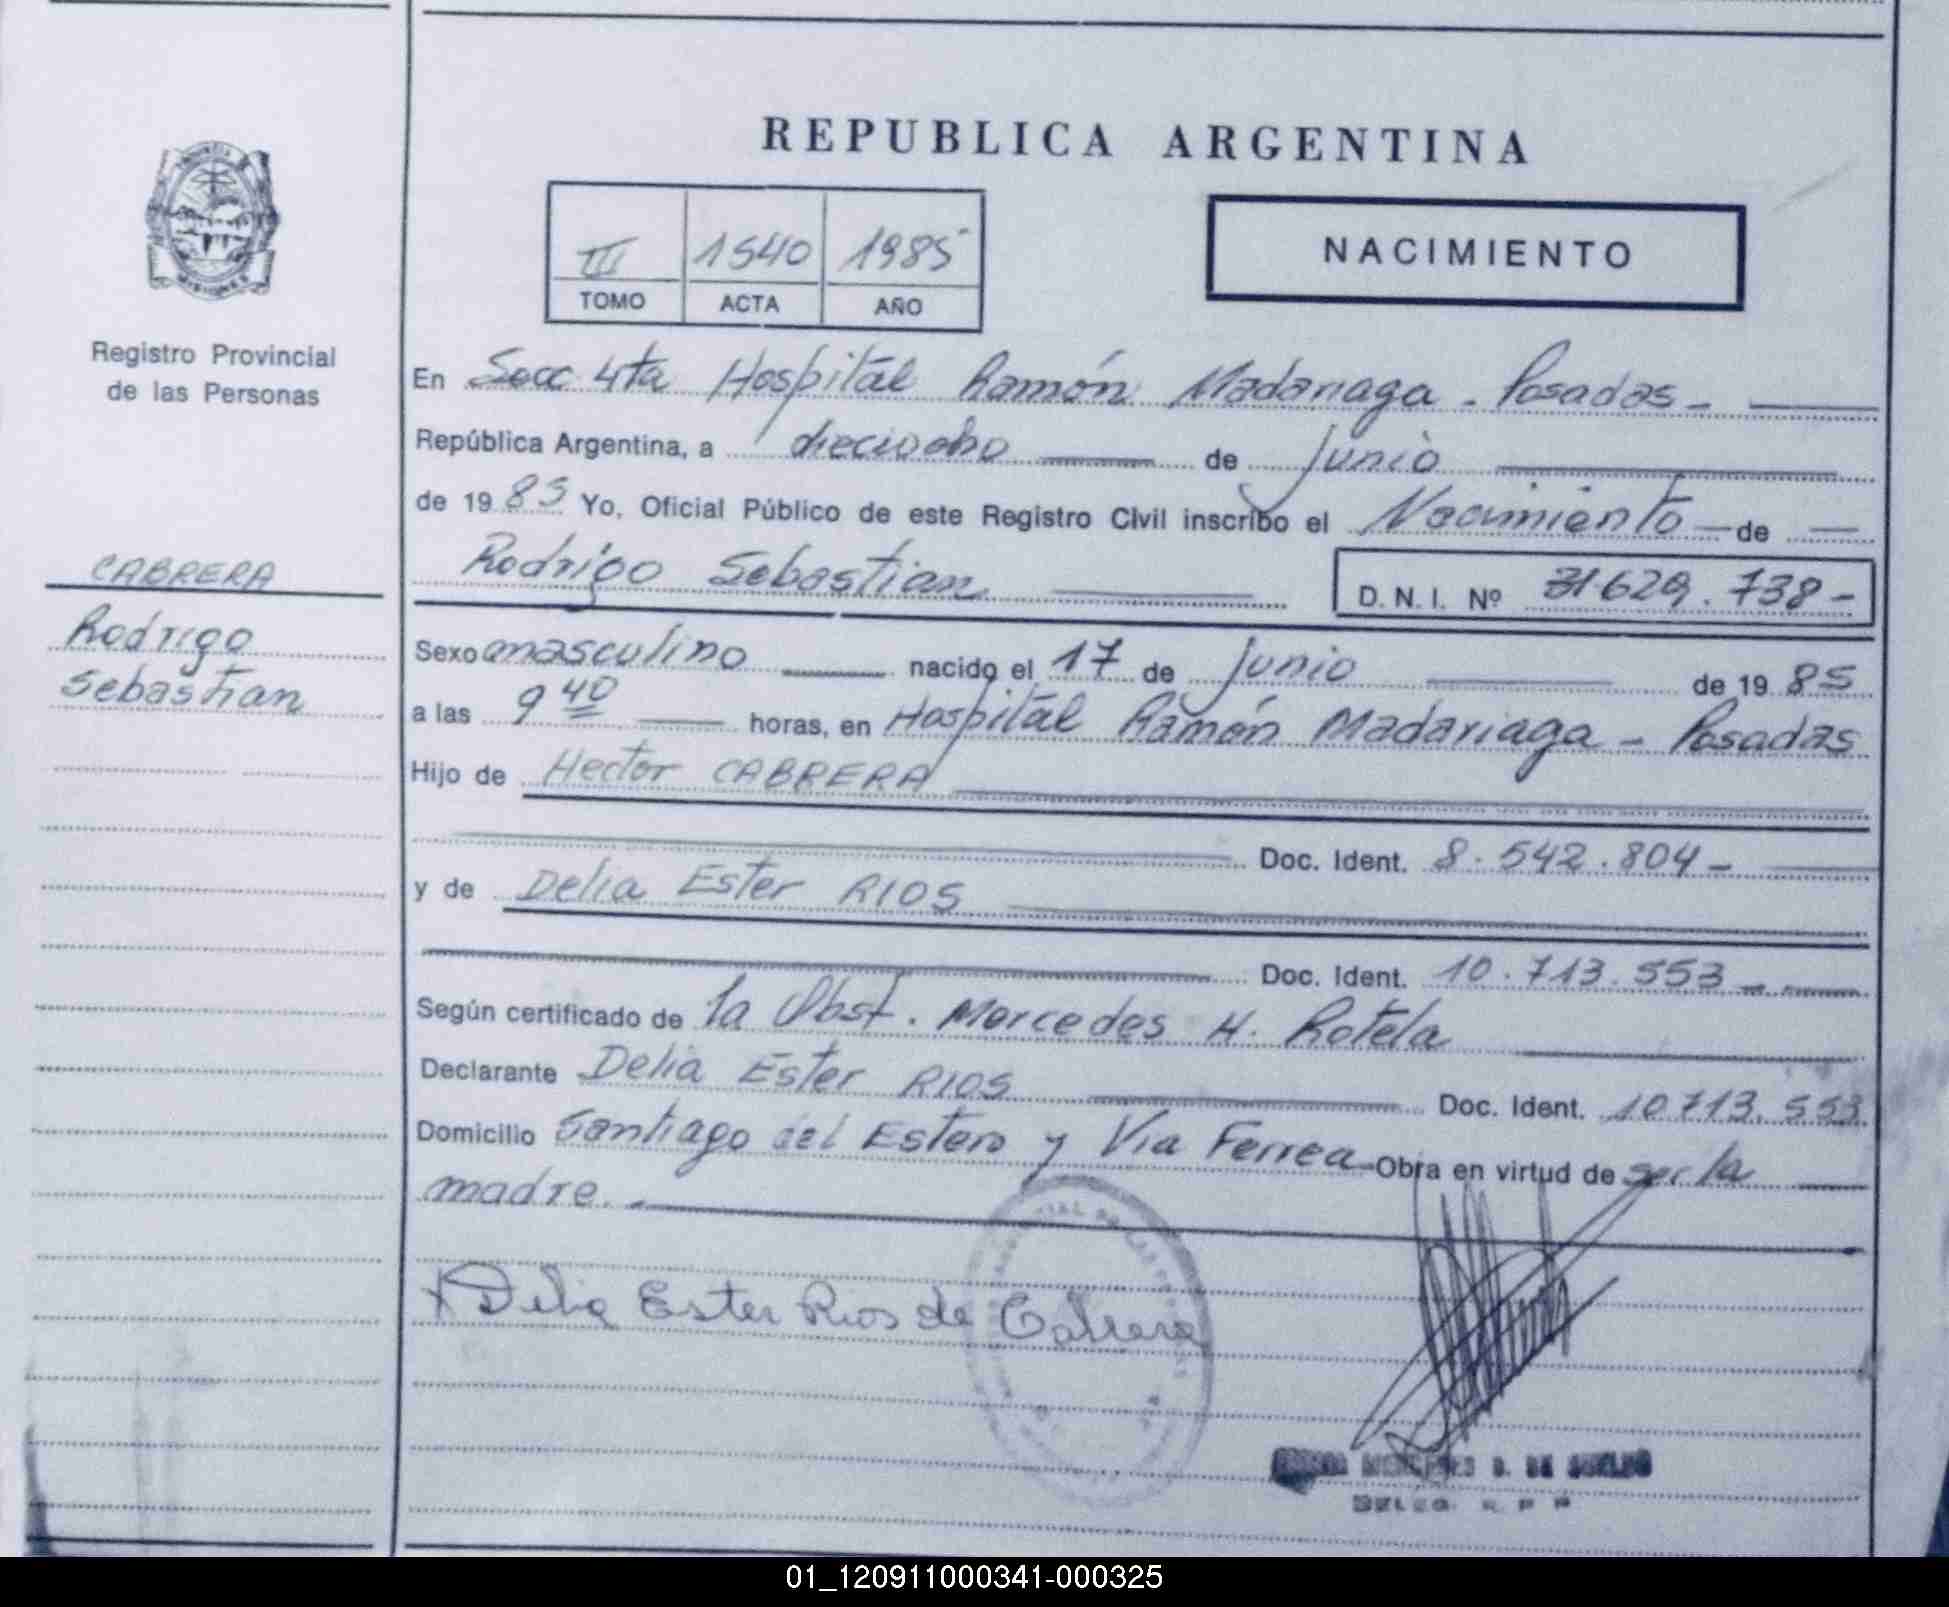 REPUBLICA ARGENTINA
III 1540 1985
TOMO ACTA AÑO
NACIMIENTO
Registro Provincial
de las Personas
CABRERA
Rodrigo
Sebastian
En Secc 4ta Hospital Ramón Madariaga - Posadas -
República Argentina, a dieciocho de Junio
de 1985 Yo, Oficial Público de este Registro Civil inscribo el Nacimiento de
Rodrigo Sebastian D. N. I. Nº 31629.738-
Sexo masculino nacido el 17 de Junio de 1985
a las 9 40 horas, en Hospital Ramón Madariaga - Posadas
Hijo de Hector CABRERA
Doc. Ident. 8.542.804-
y de Delia Ester RIOS
Doc. Ident. 10.713.553
Según certificado de la Obst. Mercedes H. Rotela
Declarante Delia Ester RIOS Doc. Ident. 10713.553
Domicilio Santiago del Estero y Via Ferrea Obra en virtud de ser la
madre.
Delia Ester Rios de Cabrera
01_120911000341-000325